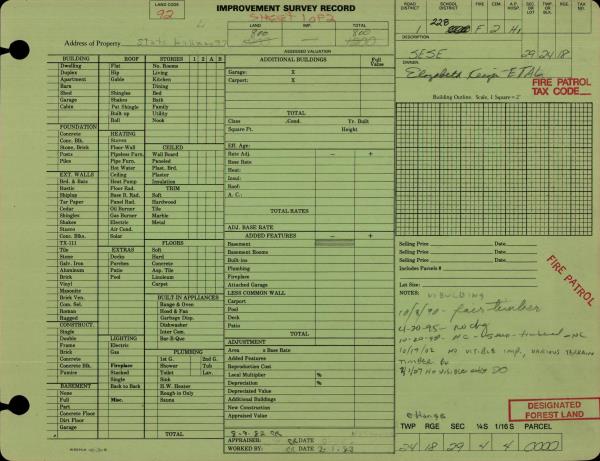 LAND CODE
92
IMPROVEMENT SURVEY RECORD
SHEET 1 OF 2
LAND IMP. TOTAL
800 800
Address of Property State
ASSESSED VALUATION
BUILDING
Dwelling
Duplex
Apartment
Barn
Shed
Garage
Cabin
FOUNDATION
Concrete
Conc. Blk.
Stone, Brick
Posts
Piles
EXT. WALLS
Brd. & Bats
Rustic
Shiplap
Tar Paper
Cedar
Shingles
Shakes
Stucco
Conc. Blks.
TX-111
Tile
Stone
Galv. Iron
Aluminum
Brick
Vinyl
Masonite
Brick Ven.
Com. Sel.
Roman
Rugged
CONSTRUCT.
Single
Double
Frame
Brick
Concrete
Pumice
BASEMENT
None
Full
Part
Concrete Floor
Dirt Floor
Garage
ROOF
Flat
Hip
Gable
Shingles
Shakes
Pat Shingle
Built up
HEATING
Stoves
Floor-Wall
Pipeless Furn.
Pipe Furn.
Hot Water
Ceiling
Heat Pump
Floor Rad.
Base B. Rad.
Panel Rad.
Oil Burner
Gas Burner
Electric
Air Cond.
Solar
EXTRAS
Decks
Porches
Patio
Pool
LIGHTING
Electric
Gas
Fireplace
Stacked
Single
Back to Back
Misc.
STORIES 1 2 A B
No. Rooms
Living
Kitchen
Dining
Bed
Bath
Family
Utility
Nook
CEILED
Wall Board
Paneled
Plast. Brd.
Plaster
Insulation
TRIM
Soft
Hardwood
Tile
Marble
Metal
FLOORS
Soft
Hard
Concrete
Asp. Tile
Linoleum
Carpet
BUILT-IN APPLIANCES
Range & Oven
Hood & Fan
Garbage Disp.
Dishwasher
Inter Com.
Bar-B-Que
PLUMBING
1st G. 2nd G.
Shower Tub
Toilet Lav.
Sink
H.W. Heater
Rough-in Only
Sauna
TOTAL
ADDITIONAL BUILDINGS Full Value
Garage: X
Carport: X
TOTAL
Class .Cond. Yr. Built
Square Ft. Height
Eff. Age:
Rate Adj. − +
Base Rate
Heat:
Insul:
Roof:
A. C.:
TOTAL RATES
ADJ. BASE RATE
ADDED FEATURES − +
Basement
Basement Rooms
Built-ins
Plumbing
Fireplace
Attached Garage
LESS COMMON WALL
Carport
Pool
Deck
Patio
TOTAL
ADJUSTMENT
Area x Base Rate
Added Features
Reproduction Cost
Local Multiplier %
Depreciation %
Depreciated Value
Additional Buildings
New Construction
Appraised Value
APPRAISER: CR DATE
WORKED BY: DATE
ROAD DISTRICT SCHOOL DISTRICT FIRE CEM. A.P. HOSP. SEC. OR LOT TWP. OR BLK. RGE. TAX NO.
228 F 2 H1
DESCRIPTION
SESE 29 24 18
OWNER
Elizabeth ET AL
FIRE PATROL
TAX CODE
Building Outline. Scale, 1 Square = 2'
Selling Price Date
Selling Price Date
Includes Parcels #
Selling Price Date
Lot Size
FIRE PATROL
NOTES:
4-20-95- no chg
10/19/02 NO VISIBLE IMP, VARIOUS TERRAIN
DESIGNATED
FOREST LAND
change
TWP RGE SEC ¼ S 1/16 S PARCEL
24 18 29 4 4 0000